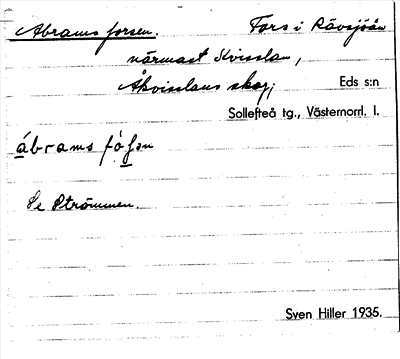 Abrams forsen. Fors i Rävsjöån
närmast Kvisslan,
Åkvisslans skog; Eds s:n
Sollefteå tg., Västernorrl. l.
ábrams fó̱ʃən
Se Strömmen.
Sven Hiller 1935.